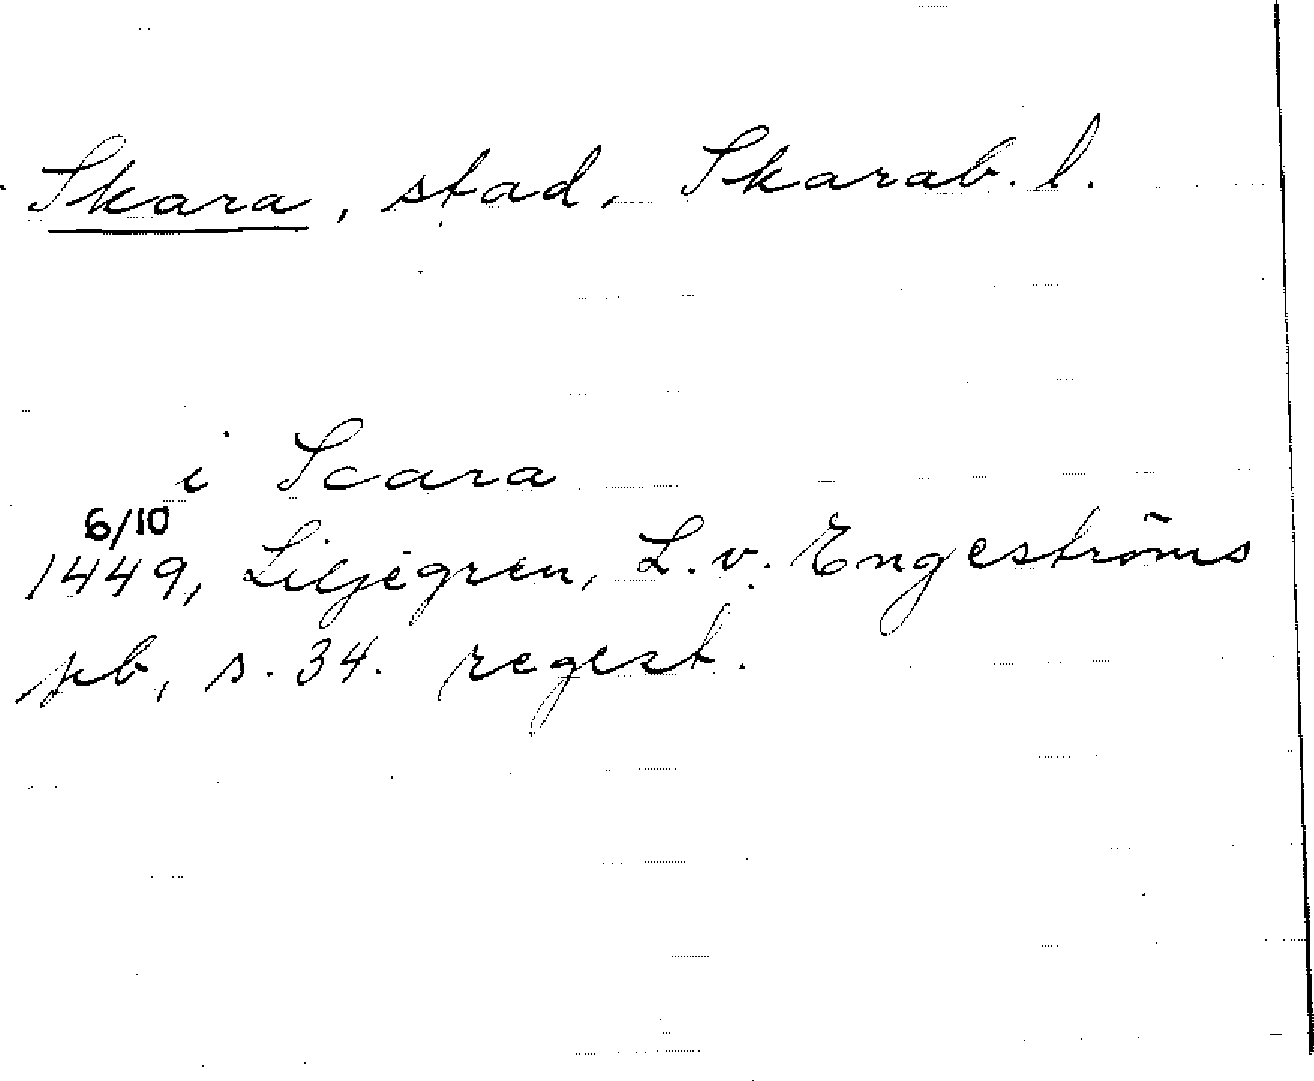 Skara, stad, Skarab. l.
i Scara
6/10
1449, Liljegren, L. v. Engeströms
pb, s. 34. regest.